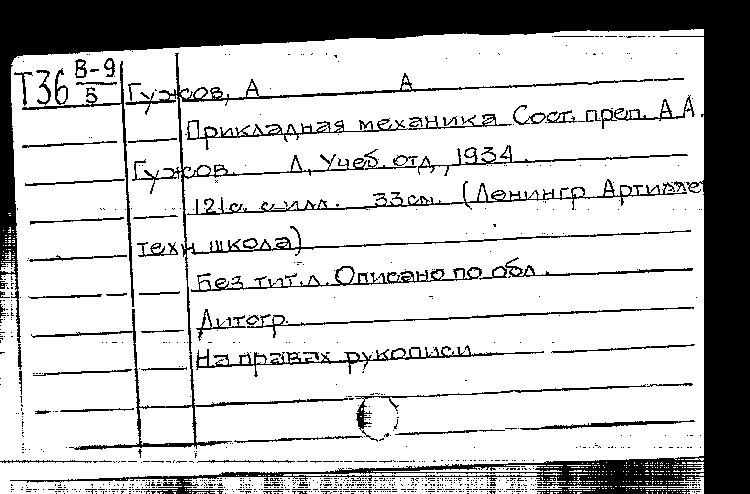 Т36 В-9/5 Гужов, А А
Прикладная механика Сост. преп. А.А.
Гужов. Л, Учеб. отд, 1934.
121с. с илл. 33см. (Ленингр Артиллер
техн школа)
Без тит. л. Описано по обл.
Литогр.
На правах рукописи